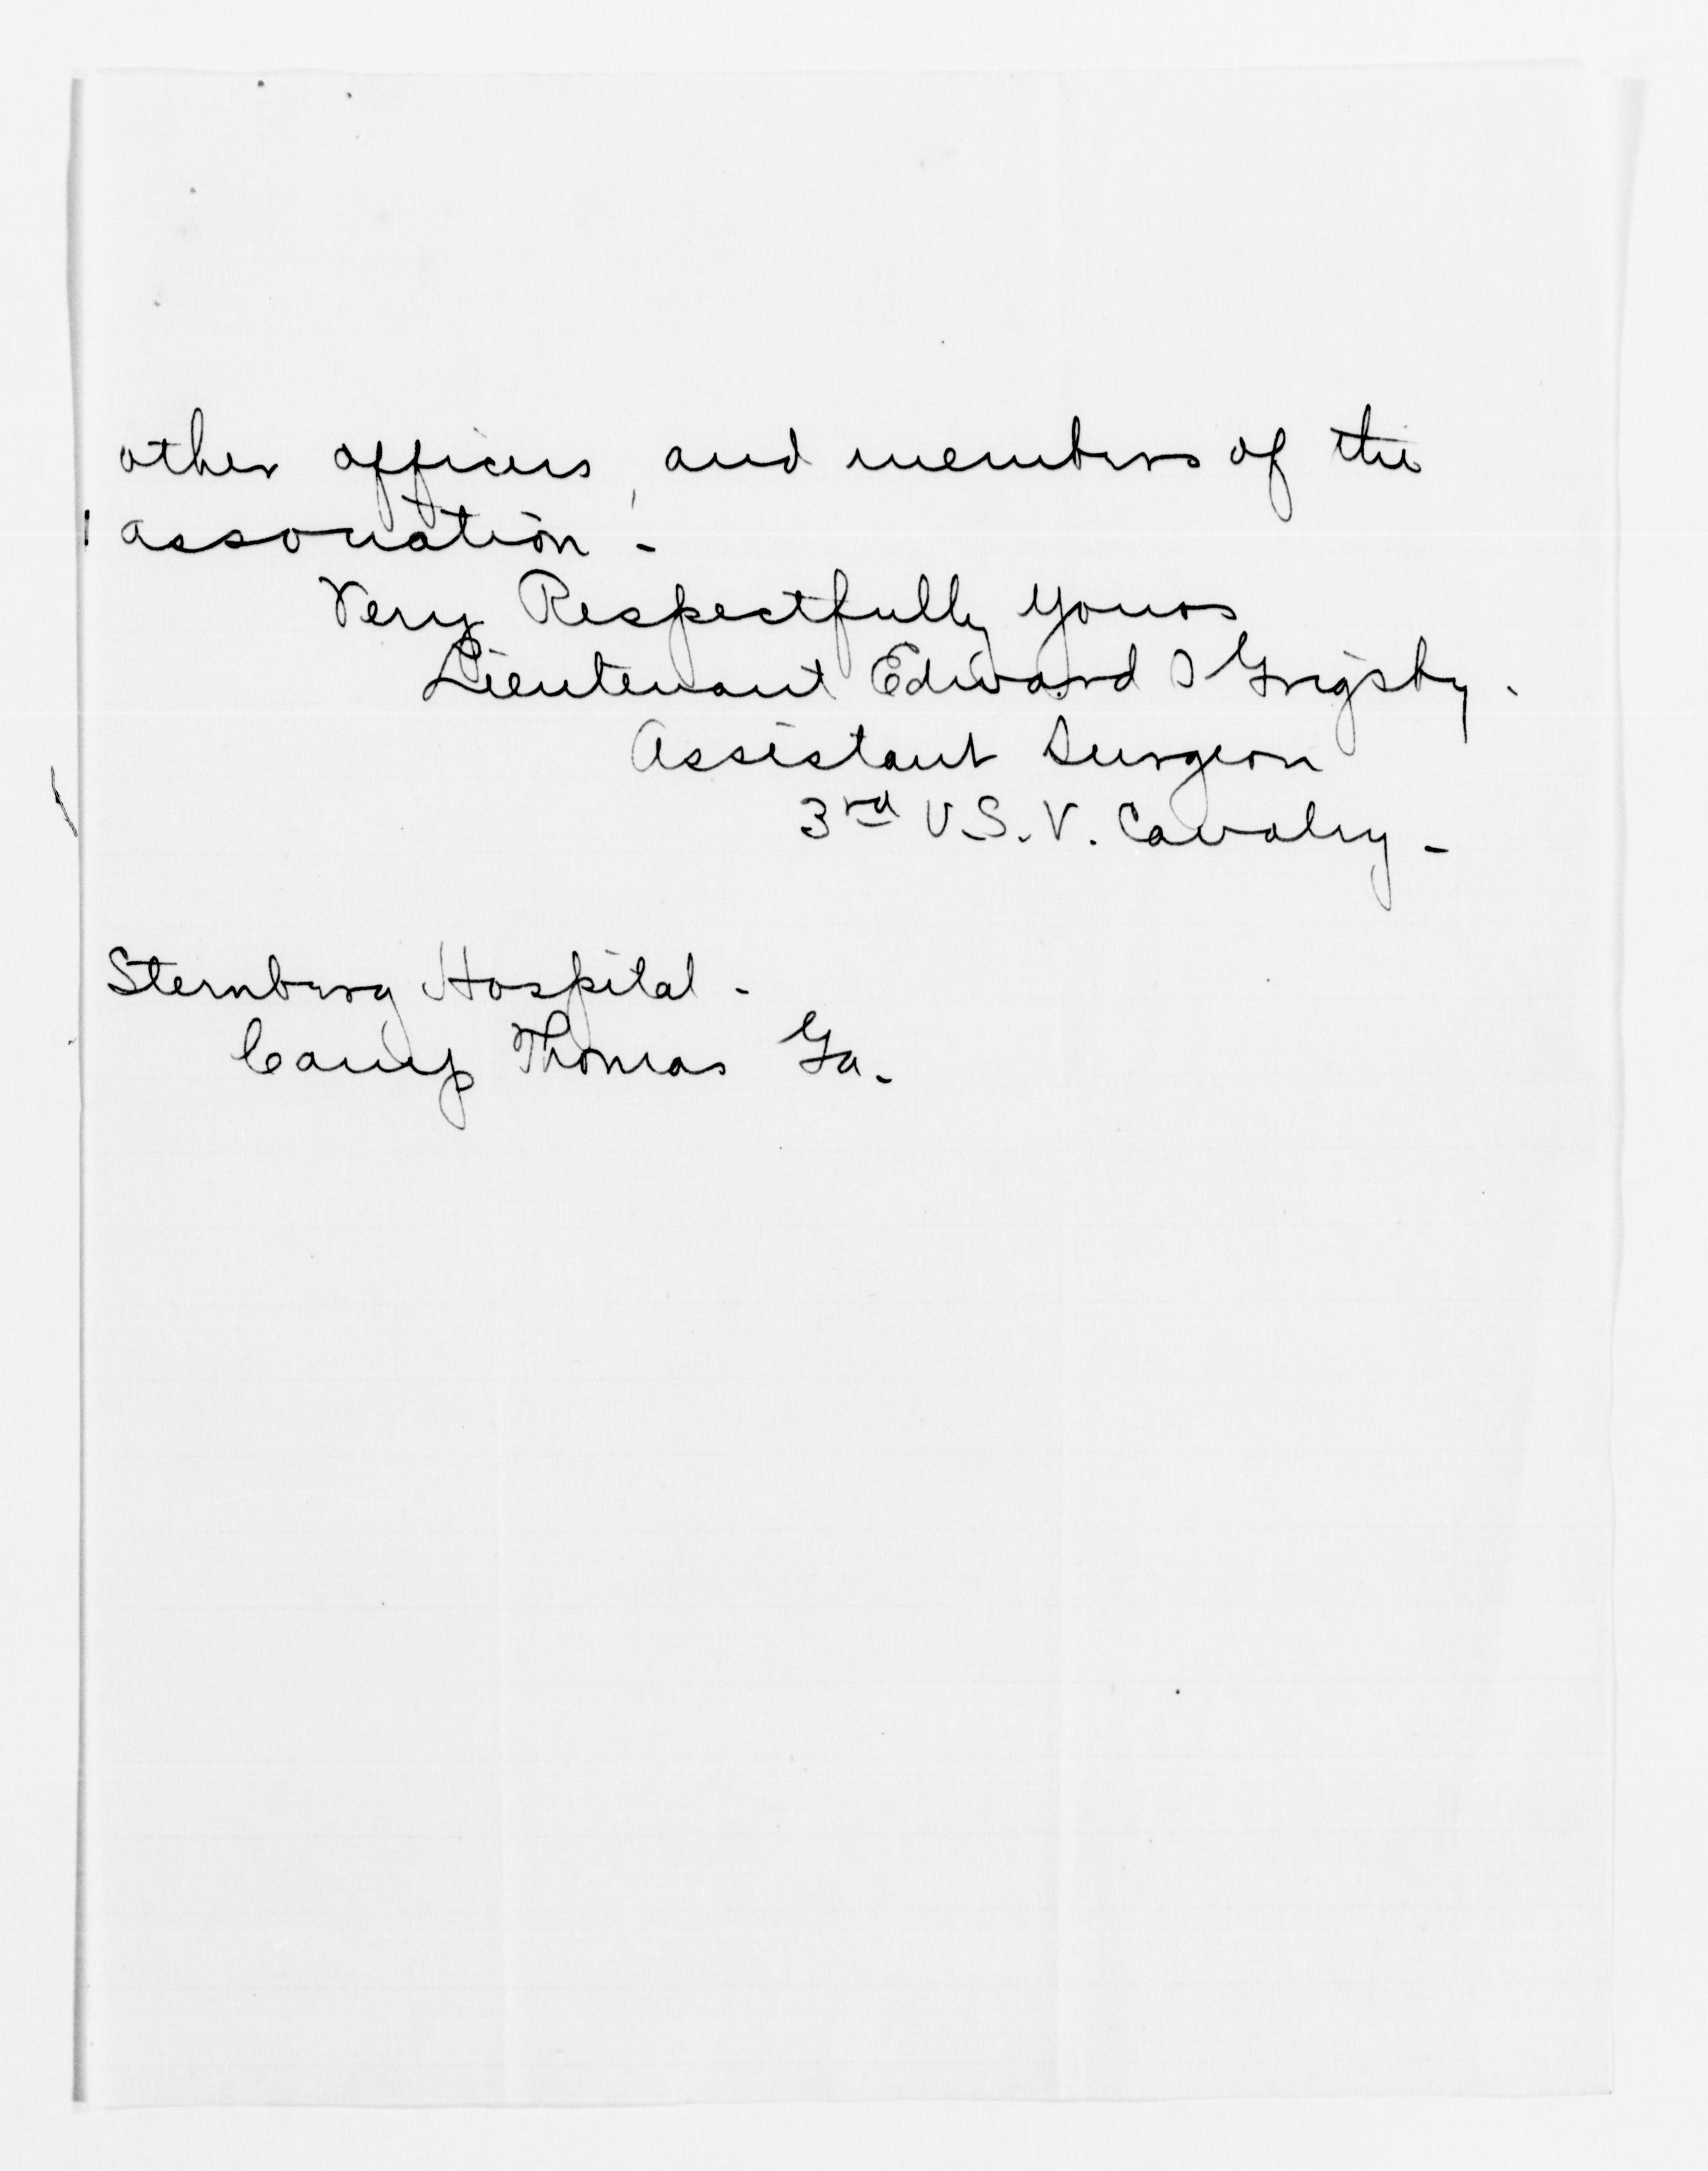 other officers, and members of the
association -
Very Respectfully Yours
Lieutenant Edward I Grigsby.
Assistant Surgeon
3rd U.S.V. Cavalry -
Sternberg Hospital -
Camp Thomas Ga.